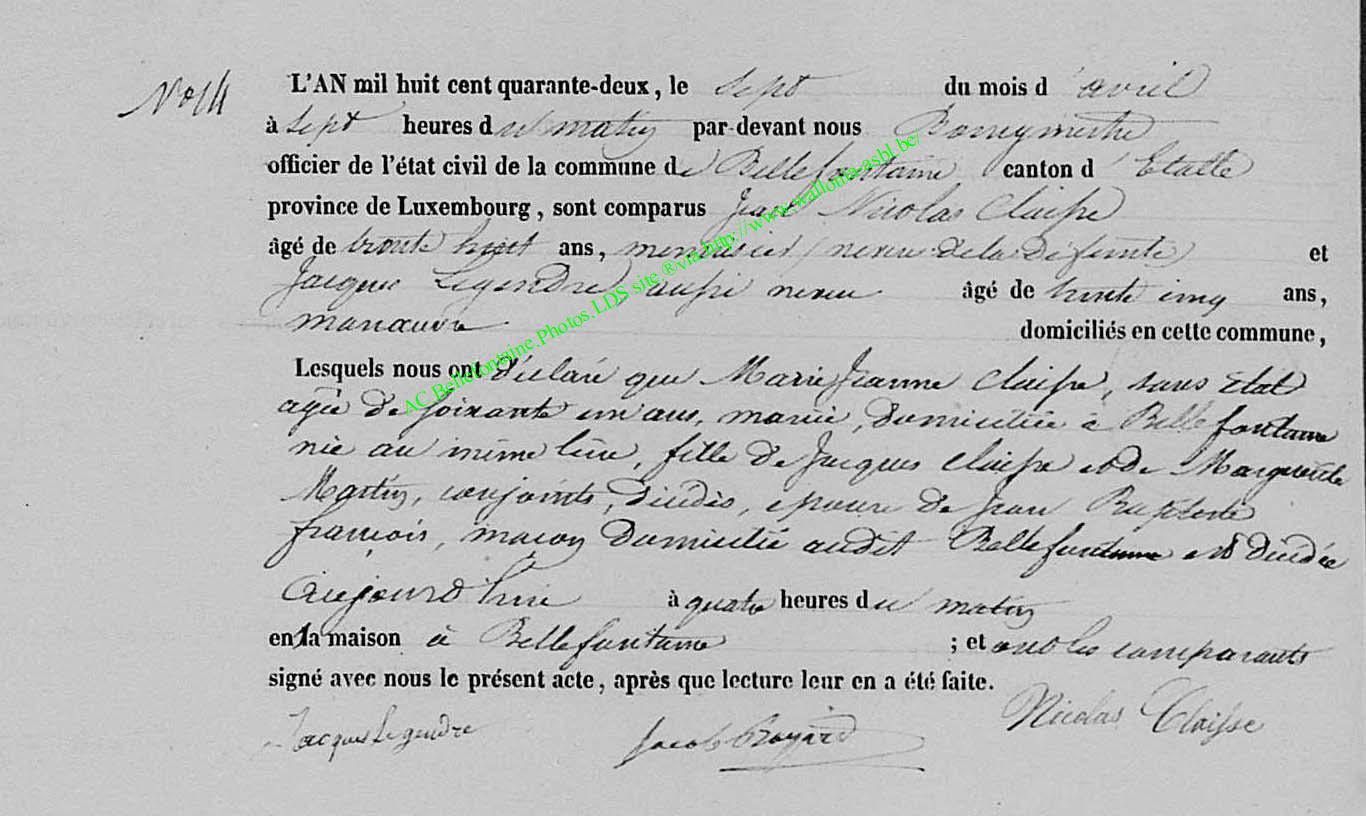 N° 14
L'AN mil huit cent quarante-deux, le sept du mois d'avril
à sept heures du matin par-devant nous Bourgmestre
officier de l'état civil de la commune de Bellefontaine canton d'Etalle
province de Luxembourg, sont comparus Jean Nicolas Claisse
âgé de trente huit ans, menuisier, neveu de la défunte et
Jacques Legendre, aussi neveu âgé de trente cinq ans,
manœuvre domiciliés en cette commune,
Lesquels nous ont déclaré que Marie Jeanne Claisse, sans Etat
agée de soixante un ans, mariée, domiciliée à Bellefontaine
née au même lieu, fille de Jacques Claisse et de Marguerite
Martin, conjoints, décédés, épouse de Jean Baptiste
françois, maçon domicilié audit Bellefontaine est décédée
aujourd'hui à quatre heures du matin
en la maison à Bellefontaine ; et ont les comparants
signé avec nous le présent acte, après que lecture leur en a été faite.
Jacques Legendre Jacob Nicolas Claisse
AC.Bellefontaine.Photos.LDS site ® via http://www.wallonia-asbl.be/